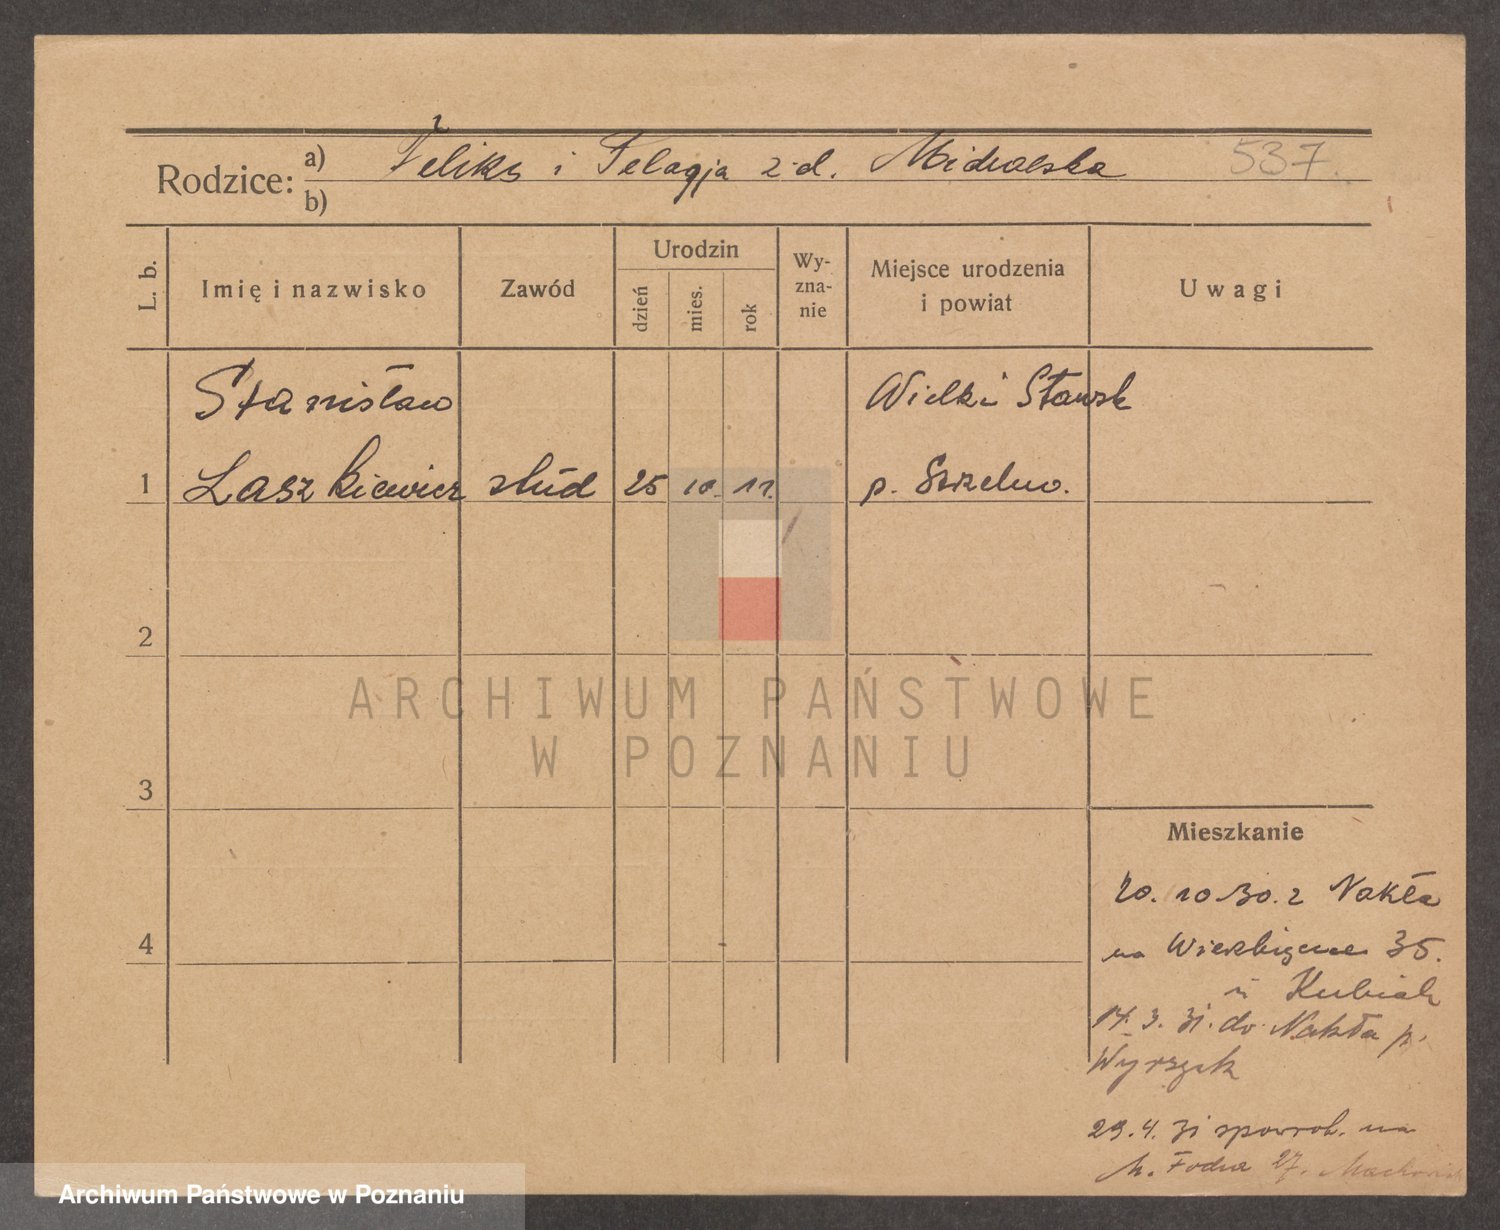 Rodzice: a) Feliks i Pelagja z d. 537.
b)
L. b. Imię i nazwisko Zawód Urodzin dzień mies. rok Wyznanie Miejsce urodzenia i powiat Uwagi
Stanisław Wielki Sławsk
1 Laszkiewicz stud 25 10. 11. p. Strzelno.
2
ARCHIWUM PAŃSTWOWE
W POZNANIU
3
Mieszkanie
20. 10 30. z Nakła
4
na Wierzbięcice 35.
u Kubiak
14. 3. 31. do Nakła p.
Wyrzysk
29. 4. 31 spowrot. na
27.
Archiwum Państwowe w Poznaniu